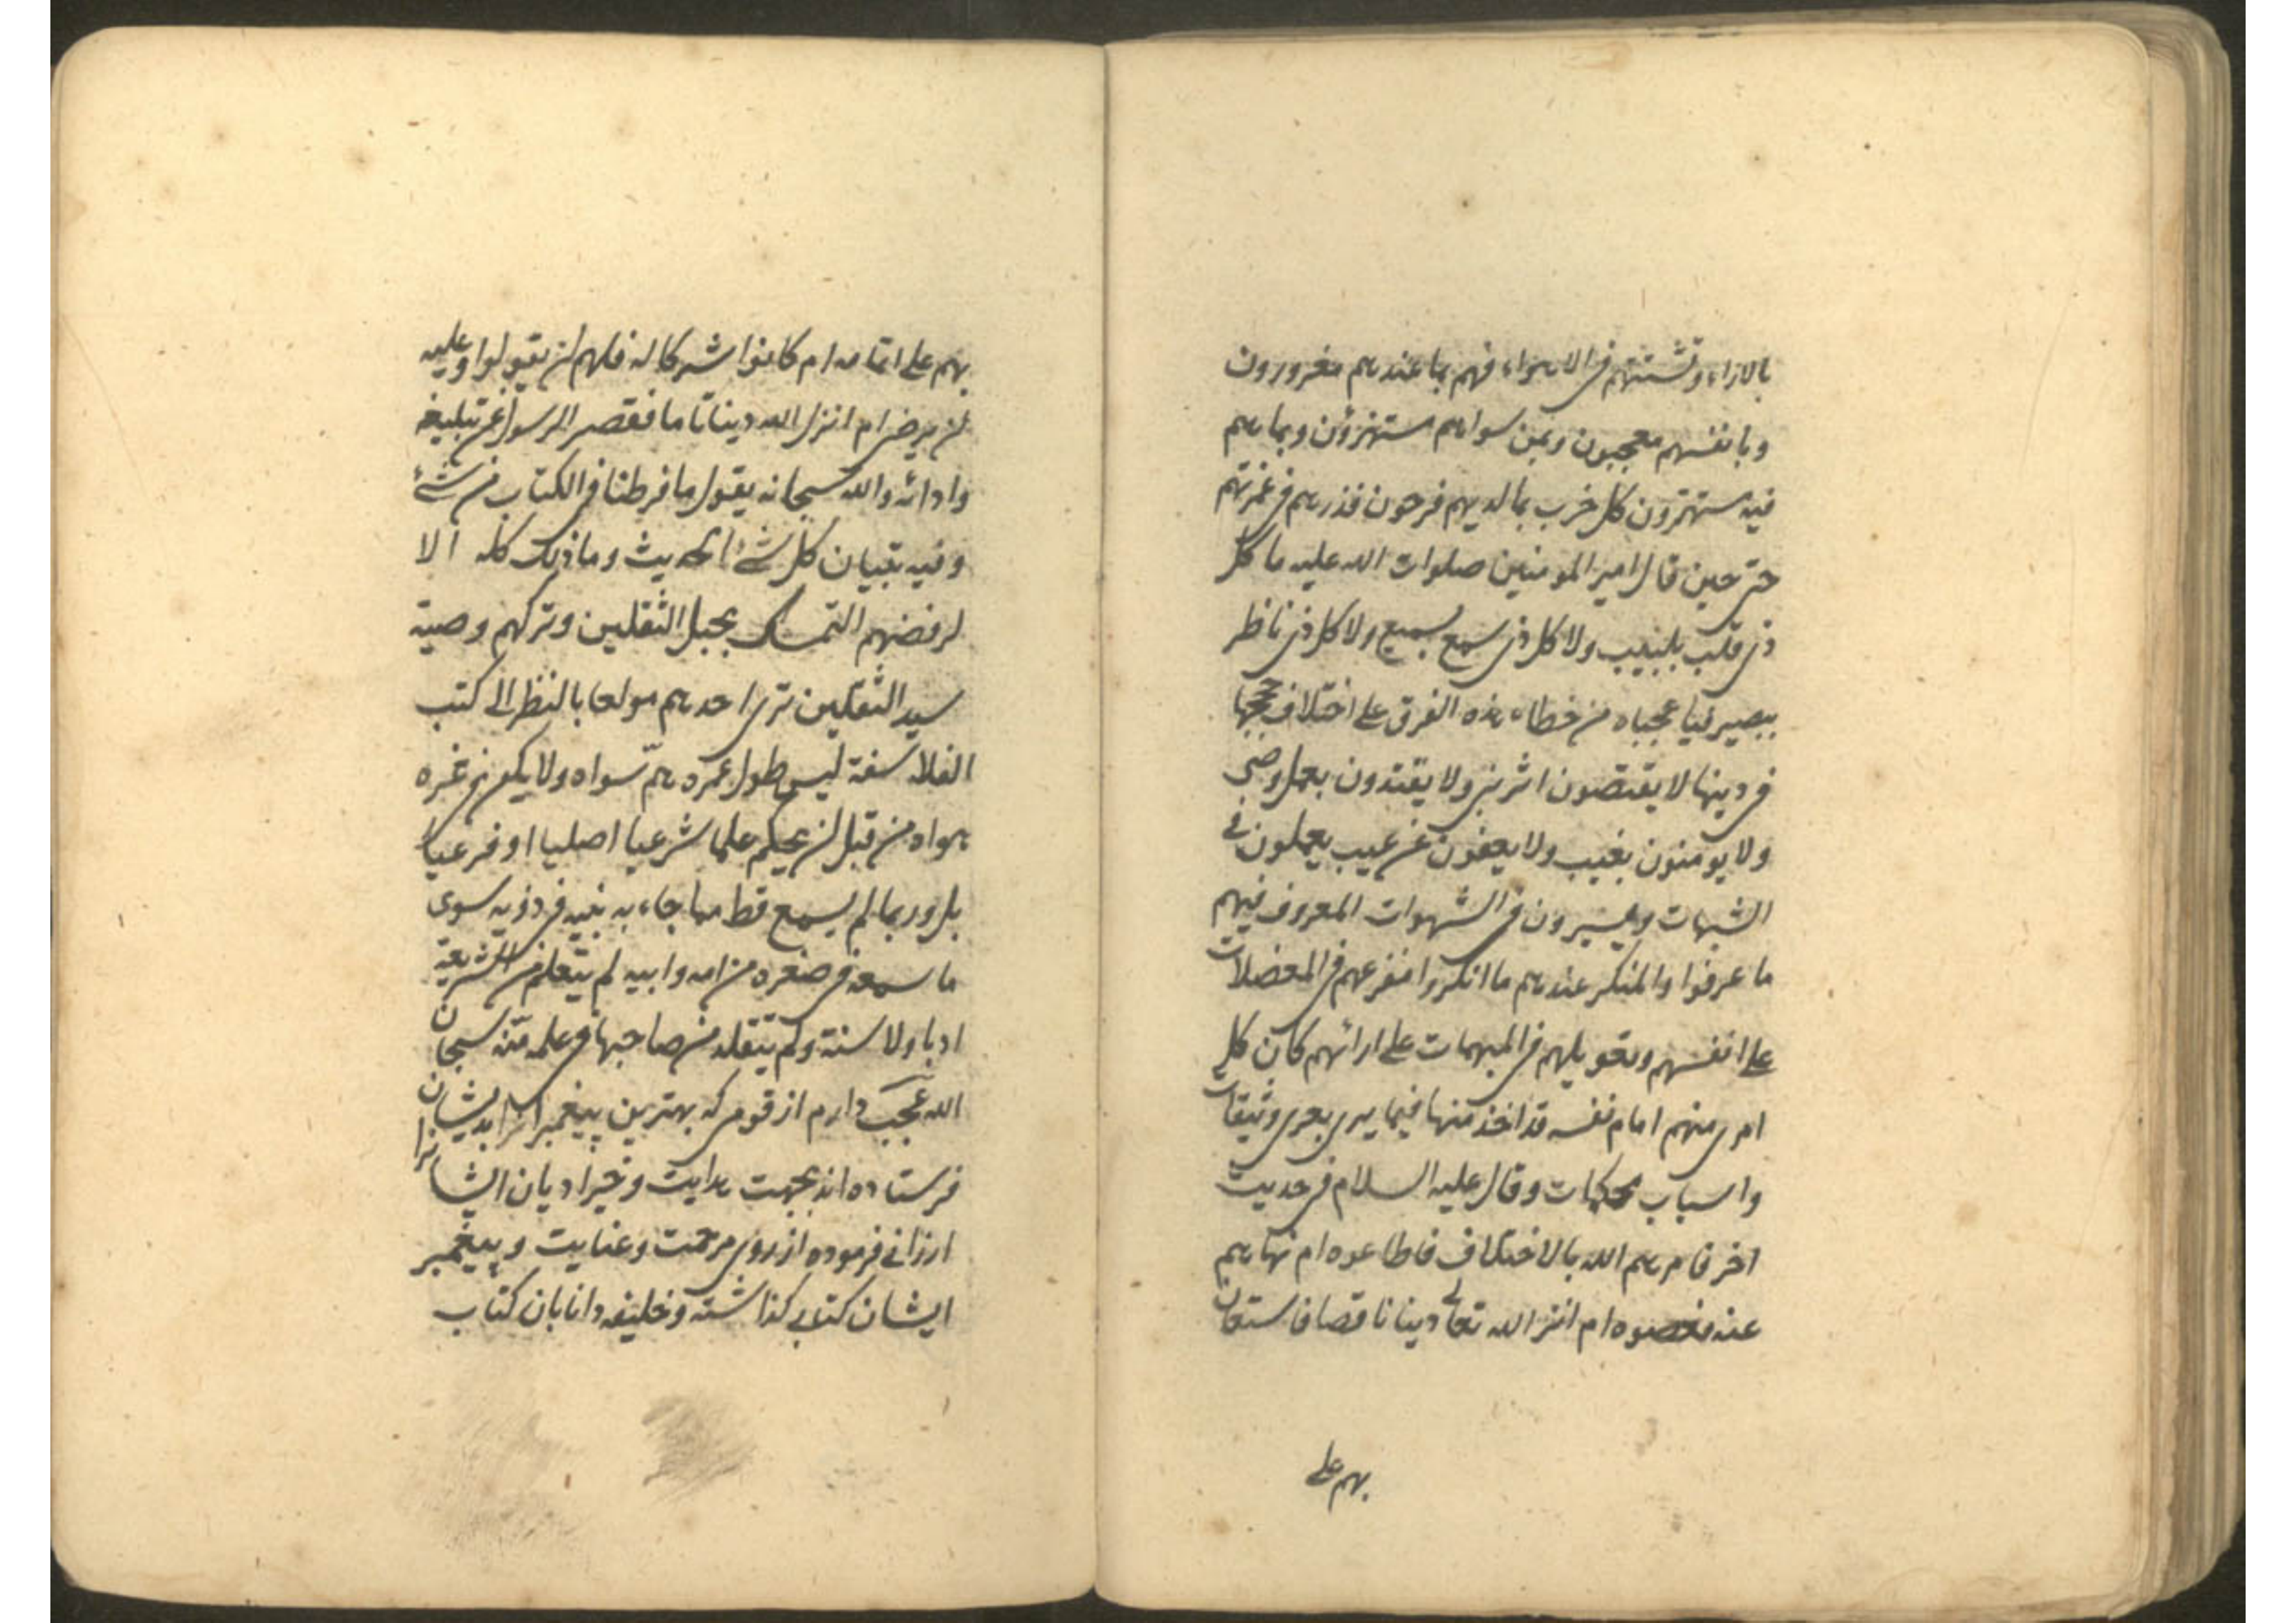 بالاراء وتشتتهم فی الاهواء فهم بما عندهم مغرورون
وبانفسهم معجبون وبمن سواهم مستهزؤن وبما هم
فیه مستهترون کل حزب بما لدیهم فرحون فذرهم فی غمرتهم
حتی حین قال امیر المومنین صلوات الله علیه ما کل
ذی قلب بلبیب ولا کل ذی سمع بسمیع ولا کل ذی ناظر
ببصیر فیا عجباه من خطاء هذه الفرق علی اختلاف حججها
فی دینها لا یقتصون اثر نبی ولا یقتدون بعمل وصی
ولا یومنون بغیب ولا یعفون عن عیب یعملون فی
الشبهات ویسیرون فی الشهوات المعروف فیهم
ما عرفوا والمنکر عندهم ما انکروا مفزعهم فی المعضلات
علی انفسهم وتعویلهم فی المبهمات علی ارائهم کان کل
امری منهم امام نفسه قد اخذ منها فیما یری بعری وثیقات
واسباب محکمات وقال علیه السلام فی حدیث
اخر فامرهم الله بالاختلاف فاطاعوه ام نهاهم
عنه فعصوه ام انزل الله تعالی دینا ناقصا فاستعان
بهم علی
بهم علی اتمامه ام کانوا شرکا له فلهم ان یقولوا وعلیه
ان یرضی ام انزل الله دینا تاما فقصر الرسول عن تبلیغه
وادائه والله سبحانه یقول ما فرطنا فی الکتاب من شئ
وفیه تبیان کل شئ الحدیث وما ذلک کله الا
لرفضهم التمسک بحبل الثقلین وترکهم وصیة
سید الثقلین تری احدهم مولعا بالنظر الی کتب
الفلاسفة لیس طول عمره هم سواه ولا یکون غره
هواه من قبل ان یحکم علما شرعیا اصلیا او فرعیا
بل وربما لم یسمع قط مما جاء به نبیه فی دینه سوی
ما سمعه فی صغره من امه وابیه لم یتعلم من الشریعة
ادبا ولا سنة ولم یتقلد من صاحبها فی علمه منه سبحان
الله عجب دارم از قومی که بهترین پیغمبرانرا بدیشان
فرستاده اند بجهت هدایت وخیر ادیان ایشانرا
ارزانی فرموده از روی مرحمت وعنایت وپیغمبر
ایشان کتابی کذاشته وخلیفه دانا بان کتاب